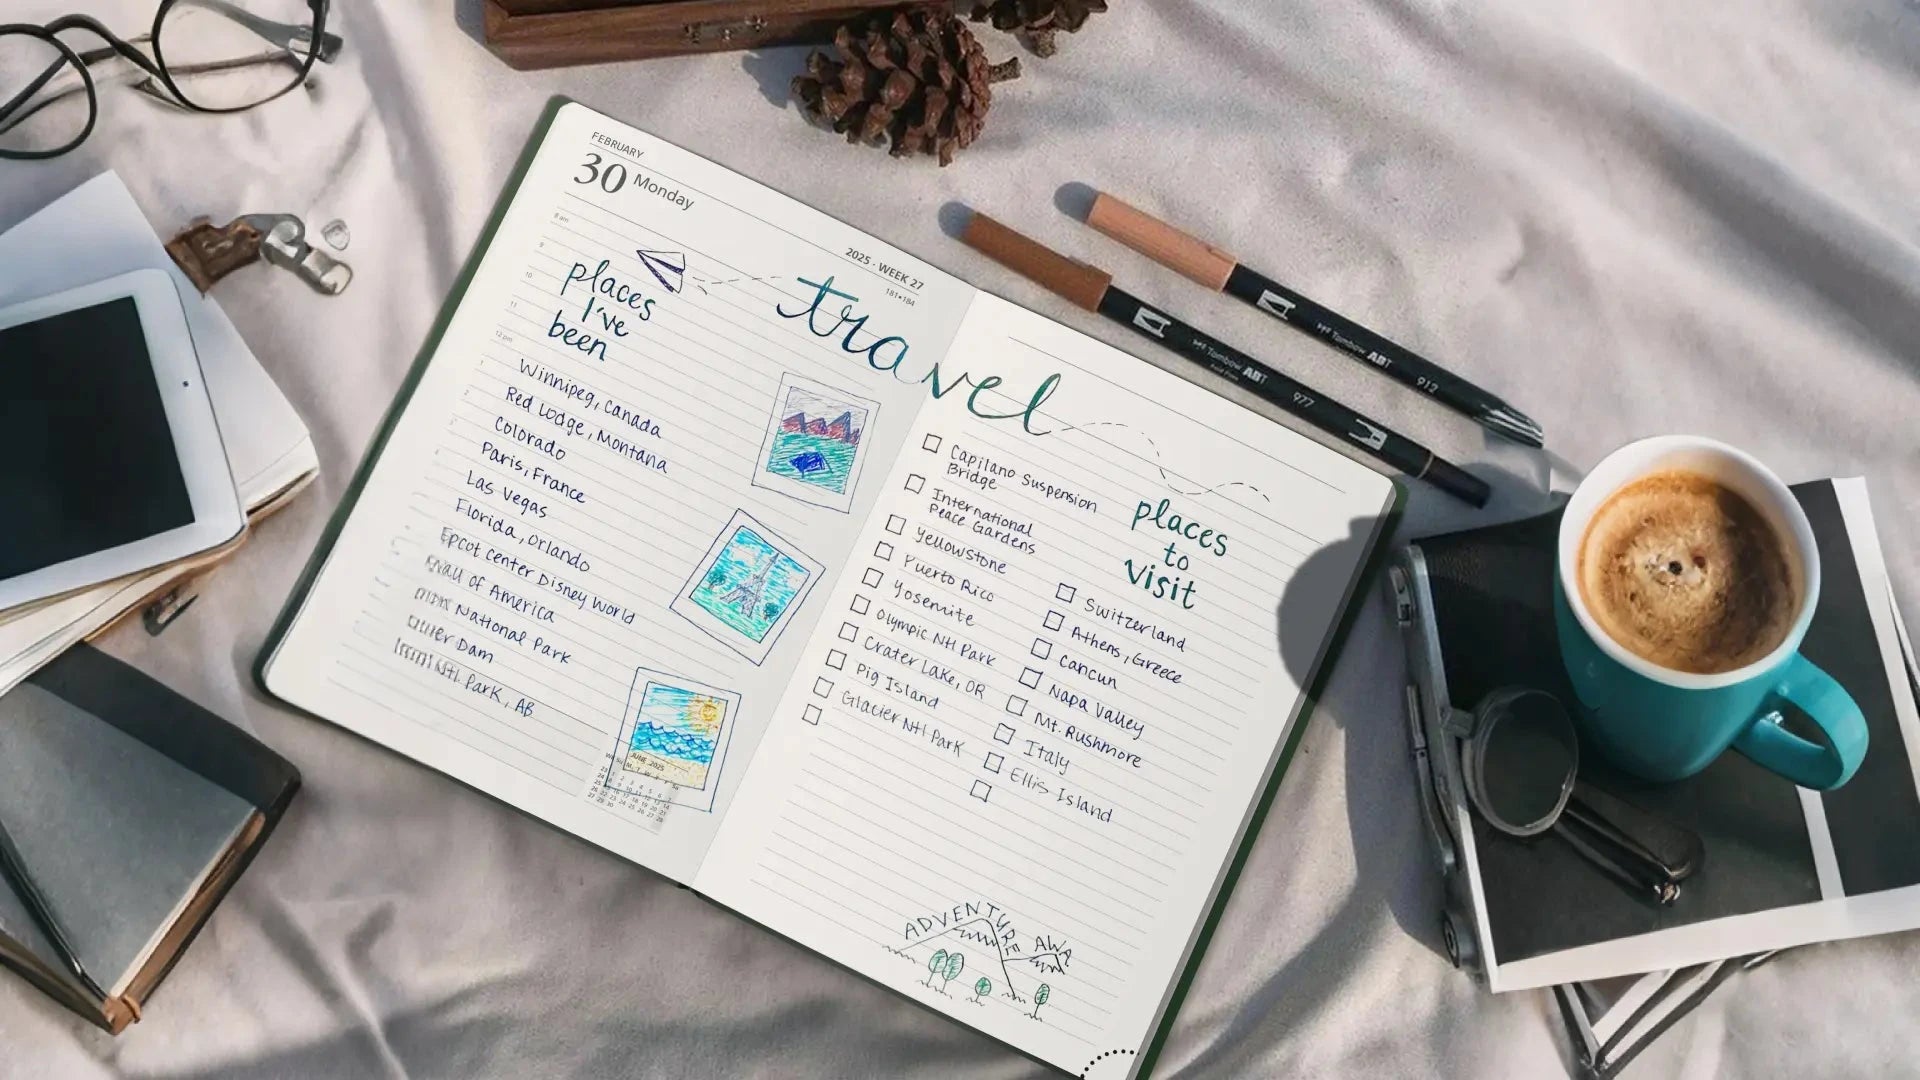 FEBRUARY
30 Monday
2025 · WEEK 27
181•184
8 am
9
10
11
12 pm
1
2
3
travel
places
I've
been
Winnipeg, Canada
Red Lodge, Montana
Colorado
Paris, France
Las Vegas
Florida, Orlando
Epcot Center Disney World
of America
National Park
Dam
Ntl. Park, AB
JUNE 2025
Capilano Suspension
Bridge
International
Peace Gardens
Yellowstone
Puerto Rico
Yosemite
Olympic Ntl Park
Crater Lake, OR
Pig Island
Glacier Ntl Park
places
to
visit
Switzerland
Athens, Greece
Cancun
Napa Valley
Mt. Rushmore
Italy
Ellis Island
ADVENTURE
Tombow ABT
977
Tombow ABT
912